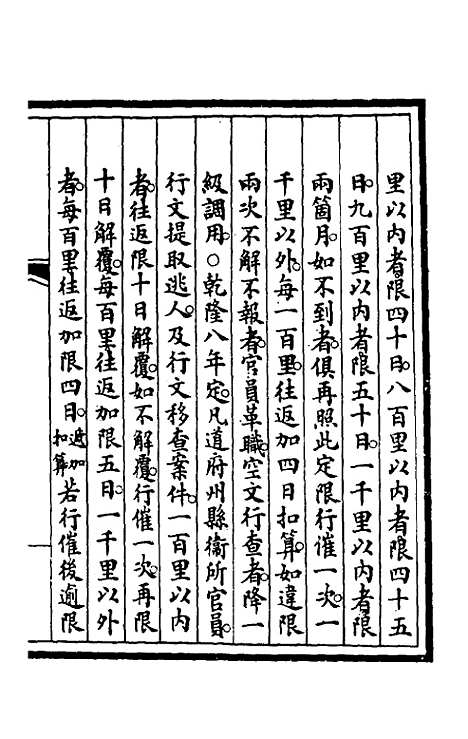 里以內者限四十日。八百里以內者限四十五
日。九百里以內者限五十日。一千里以內者限
兩箇月。如不到者。俱再照此定限行催一次。一
千里以外。每一百里。往返加四日扣算。如違限
兩次不解不報者。官員革職。空文行查者。降一
級調用。○乾隆八年定。凡道府州縣衞所官員。
行文提取逃人。及行文移查案件。一百里以內
者。往返限十日解覆。如不解覆。行催一次。再限
十日解覆。每百里往返加限五日。一千里以外
者。每百里往返加限四日。遞加扣算若行催後逾限